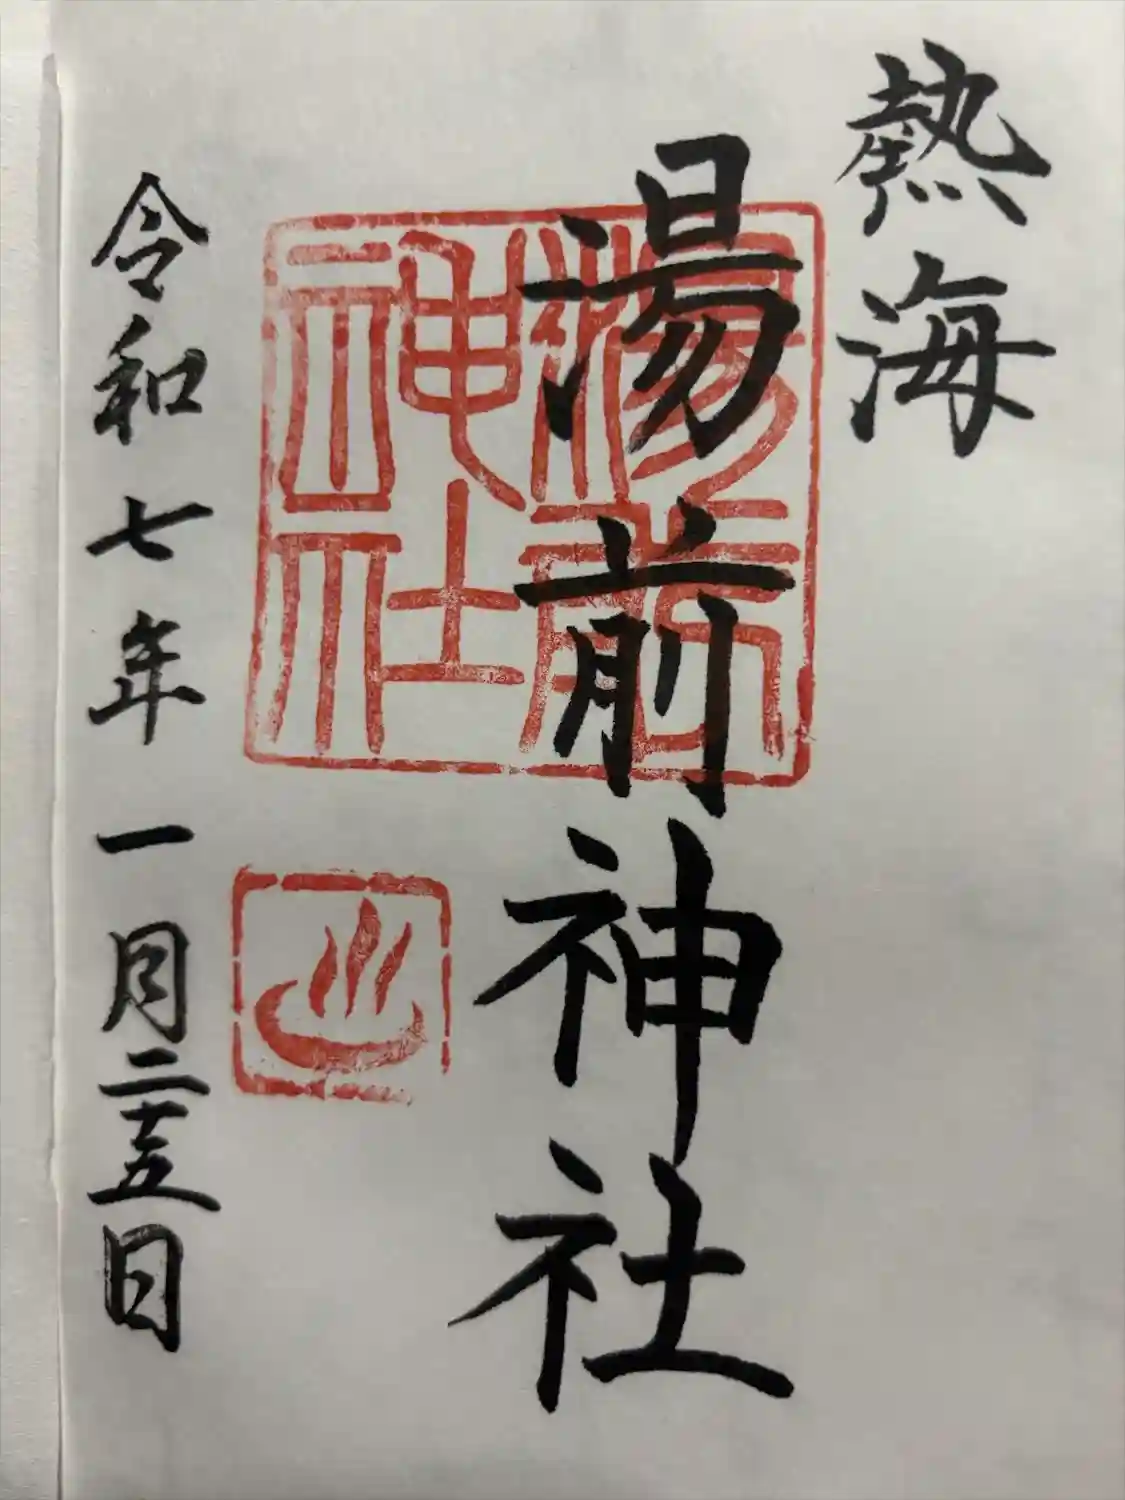 熱海
湯前神社
湯前
神社
令和七年一月二十五日